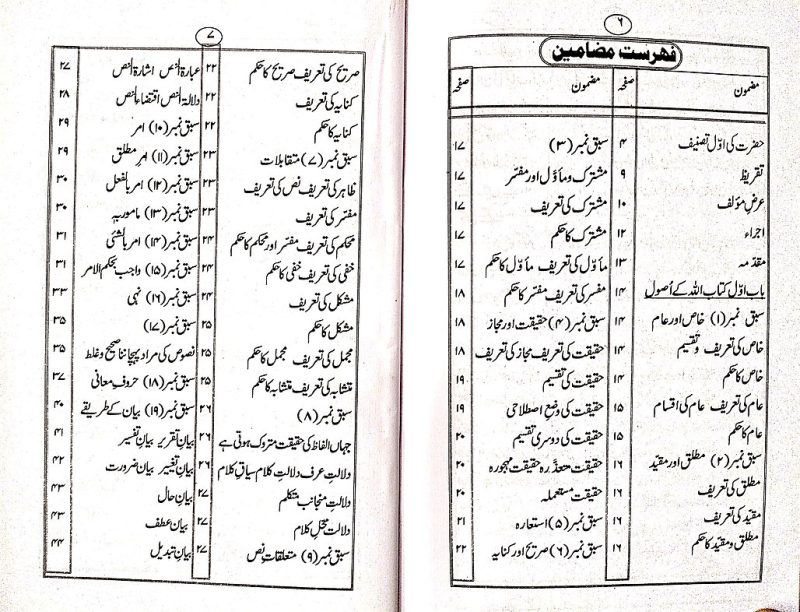 ۶
فہرست مضامین
مضمون صفحہ
حضرت کی اوّل تصنیف ۴
تقریظ ۹
عرض مؤلف ۱۰
اجراء ۱۲
مقدمہ ۱۳
باب اوّل کتاب اللہ کے اُصول ۱۴
سبق نمبر (۱) خاص اور عام ۱۴
خاص کی تعریف و تقسیم ۱۴
خاص کا حکم ۱۴
عام کی تعریف عام کی اقسام ۱۵
عام کا حکم ۱۵
سبق نمبر (۲) مطلق اور مقید ۱۶
مطلق کی تعریف ۱۶
مقید کی تعریف ۱۶
مطلق و مقید کا حکم ۱۶
مضمون صفحہ
سبق نمبر (۳) ۱۷
مشترک و مأوّل اور مفسّر ۱۷
مشترک کی تعریف ۱۷
مشترک کا حکم ۱۷
مأوّل کی تعریف مأوّل کا حکم ۱۷
مفسر کی تعریف مفسّر کا حکم ۱۸
سبق نمبر (۴) حقیقت اور مجاز ۱۸
حقیقت کی تعریف مجاز کی تعریف ۱۸
حقیقت کی تقسیم ۱۹
حقیقت کی وضع اصطلاحی ۱۹
حقیقت کی دوسری تقسیم ۲۰
حقیقت متعذّرہ حقیقت مہجورہ ۲۰
حقیقت مستعملہ ۲۰
سبق نمبر (۵) استعارہ ۲۱
سبق نمبر (۶) صریح اور کنایہ ۲۲
۷
صریح کی تعریف صریح کا حکم ۲۲
کنایہ کی تعریف ۲۲
کنایہ کا حکم ۲۲
سبق نمبر (۷) متقابلات ۲۳
ظاہر کی تعریف نص کی تعریف ۲۳
مفسّر کی تعریف ۲۳
محکم کی تعریف مفسّر اور محکم کا حکم ۲۴
خفی کی تعریف خفی کا حکم ۲۴
مشکل کی تعریف ۲۴
مشکل کا حکم ۲۵
مجمل کی تعریف مجمل کا حکم ۲۵
متشابہ کی تعریف متشابہ کا حکم ۲۵
سبق نمبر (۸) ۲۶
جہاں الفاظ کی حقیقت متروک ہوتی ہے ۲۶
دلالتِ عرف دلالتِ کلام سیاقِ کلام ۲۶
دلالتِ منجانب متکلم ۲۷
دلالت محلِ کلام ۲۷
سبق نمبر (۹) متعلقاتِ نص ۲۷
عبارۃ النّص اشارۃ النّص ۲۷
دلالۃ النص اقتضاء النص ۲۸
سبق نمبر (۱۰) امر ۲۹
سبق نمبر (۱۱) امرِ مطلق ۲۹
سبق نمبر (۱۲) امر بالفعل ۳۰
سبق نمبر (۱۳) مامور بہٖ ۳۰
سبق نمبر (۱۴) امر بالشئی ۳۱
سبق نمبر (۱۵) واجب بحکم الامر ۳۱
سبق نمبر (۱۶) نہی ۳۳
سبق نمبر (۱۷) ۳۵
نصوص کی مراد پہچاننا صحیح و غلط ۳۵
سبق نمبر (۱۸) حروفِ معانی ۳۷
سبق نمبر (۱۹) بیان کے طریقے ۴۰
بیانِ تقریر بیانِ تفسیر ۴۱
بیانِ تغییر بیانِ ضرورت ۴۲
بیانِ حال ۴۳
بیانِ عطف ۴۳
بیانِ تبدیل ۴۴